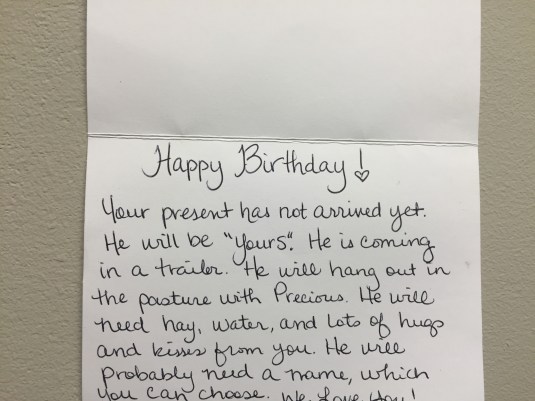 Happy Birthday!
Your present has not arrived yet.
He will be "yours". He is coming
in a trailer. He will hang out in
the pasture with Precious. He will
need hay, water, and lots of hugs
and kisses from you. He will
probably need a name, which
you can choose. We Love You!